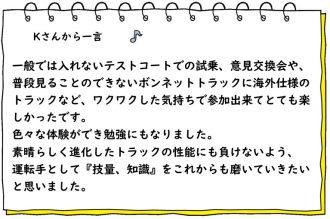 Kさんから一言
一般では入れないテストコートでの試乗、意見交換会や、
普段見ることのできないボンネットトラックに海外仕様の
トラックなど、ワクワクした気持ちで参加出来てとても楽
しかったです。
色々な体験ができ勉強にもなりました。
素晴らしく進化したトラックの性能にも負けないよう、
運転手として『技量、知識』をこれからも磨いていきたい
と思いました。